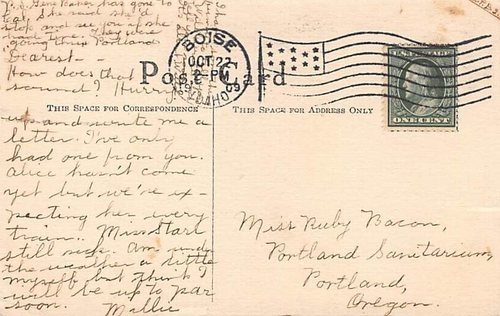 P.S. Gene Baker has gone to
She said she'd
stop and see you if she
had time. They were
going thru Portland.
Dearest—
How does that
sound? Hurry
up and write me a
letter. I've only
had one from you.
Alice hasn't come
yet but we're ex-
pecting her every
train. Miss Starl
still sick. Am under
the weather a little
myself but think I
will be up to par
soon. Mallie
Post Card
THIS SPACE FOR CORRESPONDENCE
THIS SPACE FOR ADDRESS ONLY
BOISE
OCT 22
2-PM
1909
IDAHO
ONE CENT
Miss Ruby Bacon,
Portland Sanitarium,
Portland,
Oregon.